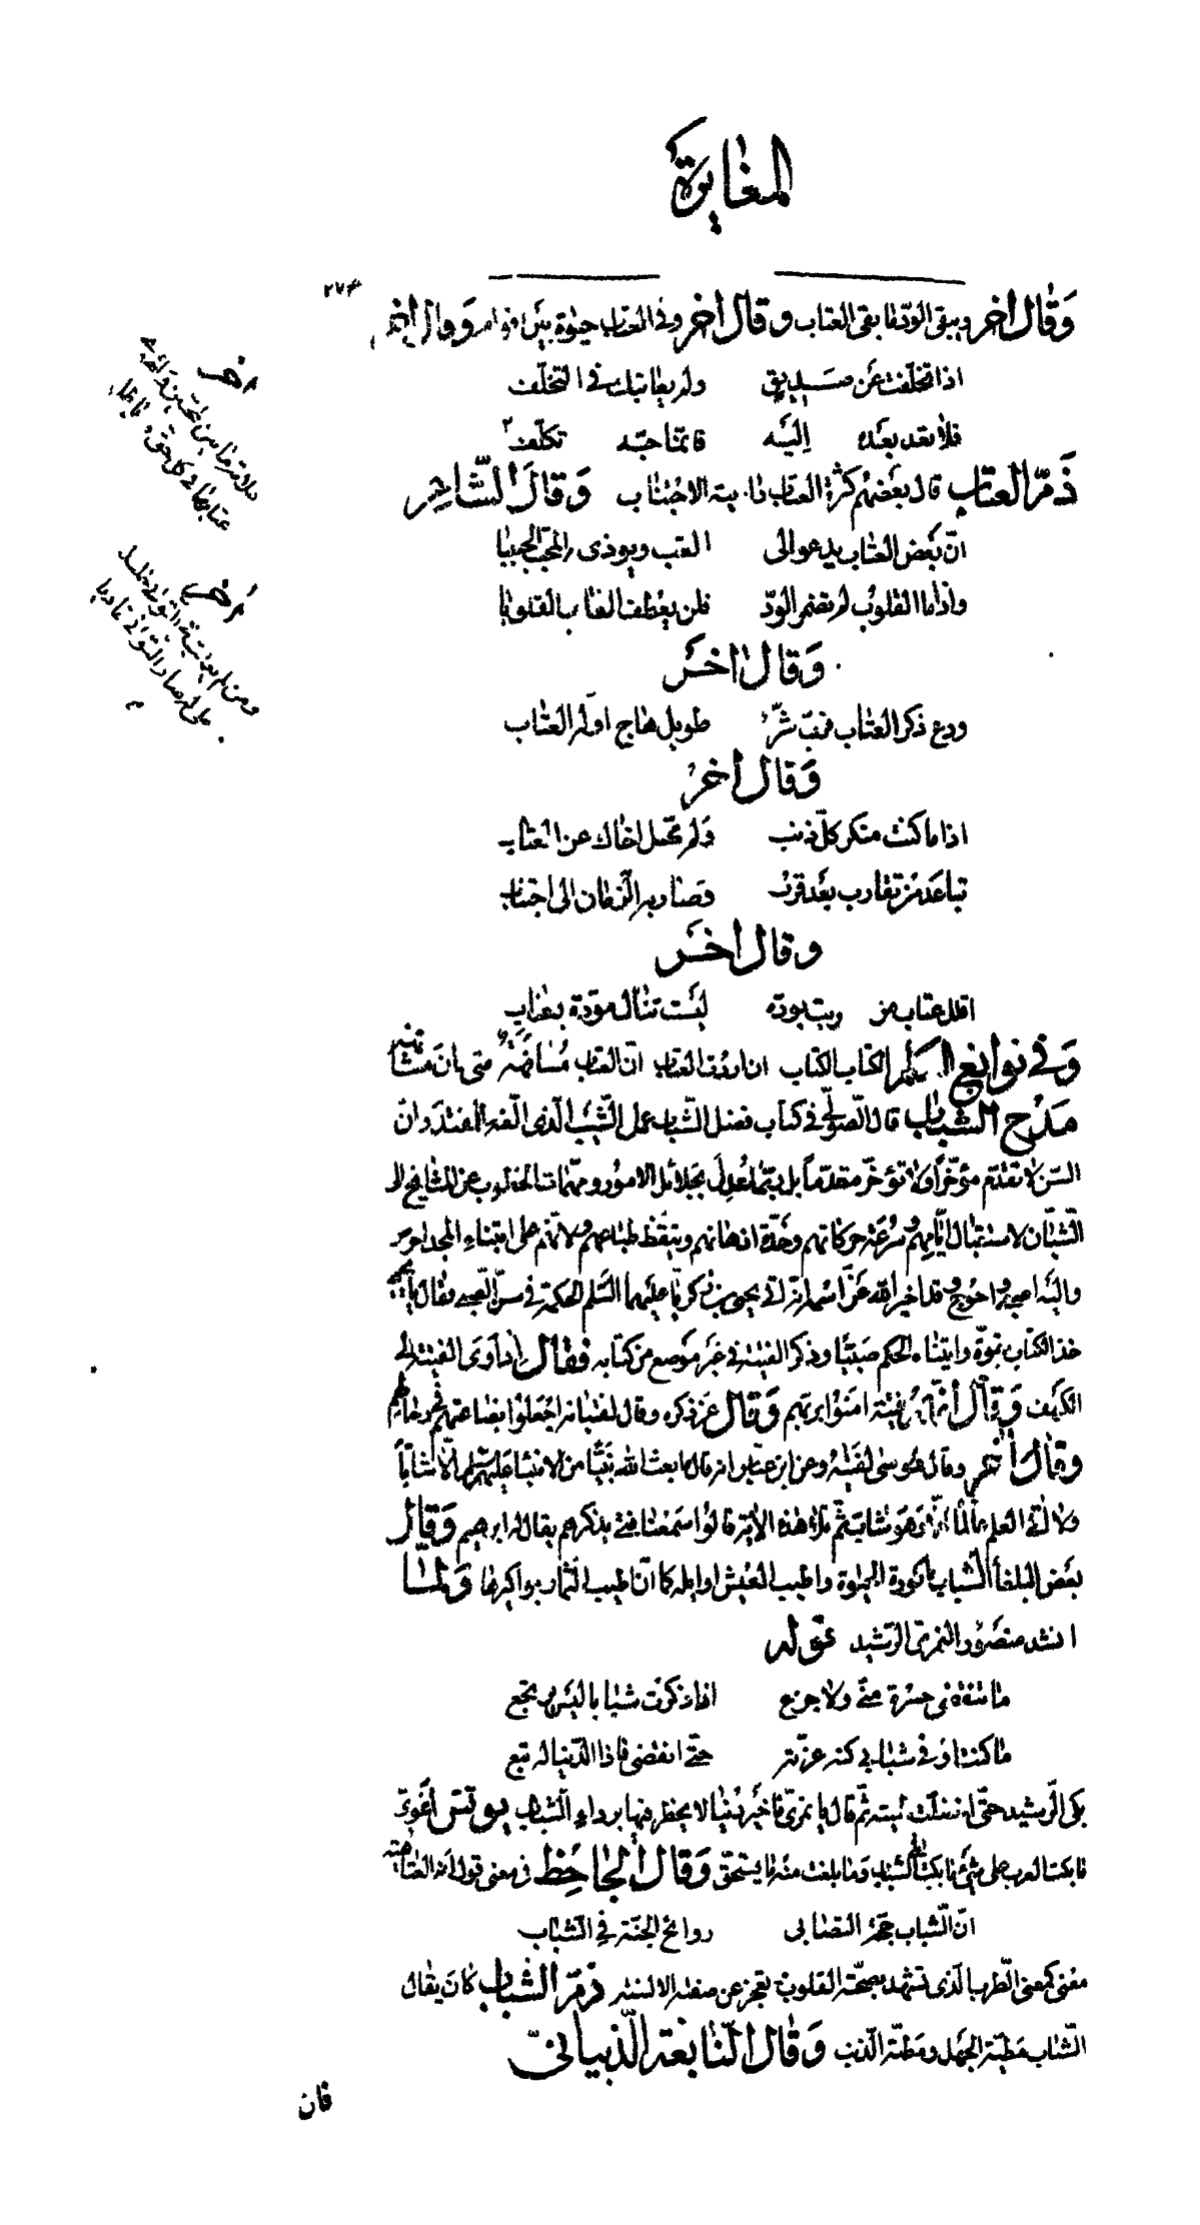 المغايرة
٢٧٤
وقال اخر ويبقى الود ما بقى العتاب وقال اخر وفى العتاب حيوة بين اقوام وقال اخر
اذا تخلفت عن صديق ولم يعاتبك فى التخلف
فلا تعد بعدها اليه فانما حبه تكلف
ذم العتاب قال بعضهم كثرة العتاب داعية الاجتناب وقال الشاعر
ان بعض العتاب يدعو الى العتب ويوذى المحب الحبيبا
واذا ما القلوب لم تضمر الود فلن يعطف العتاب القلوبا
وقال اخر
ودع ذكر العتاب فرب شر طويل هاج اوله العتاب
وقال اخر
اذا ما كنت منكر كل ذنب ولم تجلل اخاك عن العتاب
تباعد من تقارب بعد قرب وصار به الزمان الى اجتناب
وقال اخر
اقلل عتاب من ريب بوده ليست تنال مودة بعتاب
وفى نوابغ الكلم الكتاب الكتاب ان اردت العتاب ان العتاب مسافهة متى كان مشافهة
مدح الشباب قال الصولى فى كتاب فضل الشباب على الشيب الذى الفه للمقتدر وان
السن لا تقدم مؤخرا ولا تؤخر مقدما بل ربما عدل بجلائل الامور ومهمات الخطوب عن المشايخ الى
الشبان لاستقبال ايامهم وسرعة حركاتهم وحدة اذهانهم وتيقظ طباعهم ولانهم على ابتناء المجد احرص
واليه اصبى واحوج وقد اخبر الله عز اسمه انه اتى يحيى بن زكريا عليهما السلم الحكمة فى سن الصبى فقال يا يحيى
خذ الكتاب بقوة واتيناه الحكم صبيا وذكر الفتية فى غير موضع من كتابه فقال اذ اوى الفتية الى
الكهف وقال انهم فتية امنوا بربهم وقال عز ذكره وقال لفتيانه اجعلوا بضاعتهم فى رحالهم
وقال اخر وقال موسى لفتيه وعن ابن عباس انه قال ما بعث الله نبيا من الانبياء عليهم السلم الا شابا
ولا اتى العلم عالما الا وهو شاب ثم تلا هذه الاية قالوا سمعنا فتى يذكرهم يقال له ابرهيم وقال
بعض البلغاء الشباب باكورة الحيوة واطيب العيش اوايله كما ان اطيب الثمار بواكيرها ولما
انشد منصور النمرى الرشيد قوله
ما تنقضى حسرة منى ولا جزع اذا ذكرت شبابا ليس يرتجع
ما كنت اوفى شبابى كنه عزته حتى انقضى فاذا الدنيا له تبع
بكى الرشيد حتى اخضلت لحيته ثم قال يا نمرى ما خير دنيا لا يحظر فيها برداء الشباب يونس النحوى
ما بكت العرب على شئ ما بكت الشباب وما بلغت منه ما يستحق وقال الجاحظ فى معنى قول ابى العتاهية
ان الشباب حجة التصابى روائح الجنة فى الشباب
معنى كمعنى الطرب الذى تشهد بصحته القلوب وتعجز عن صفته الالسنة ذم الشباب كان يقال
الشباب مطية الجهل ومطية الذنب وقال النابغة الذبيانى
فان
اخر
اخر